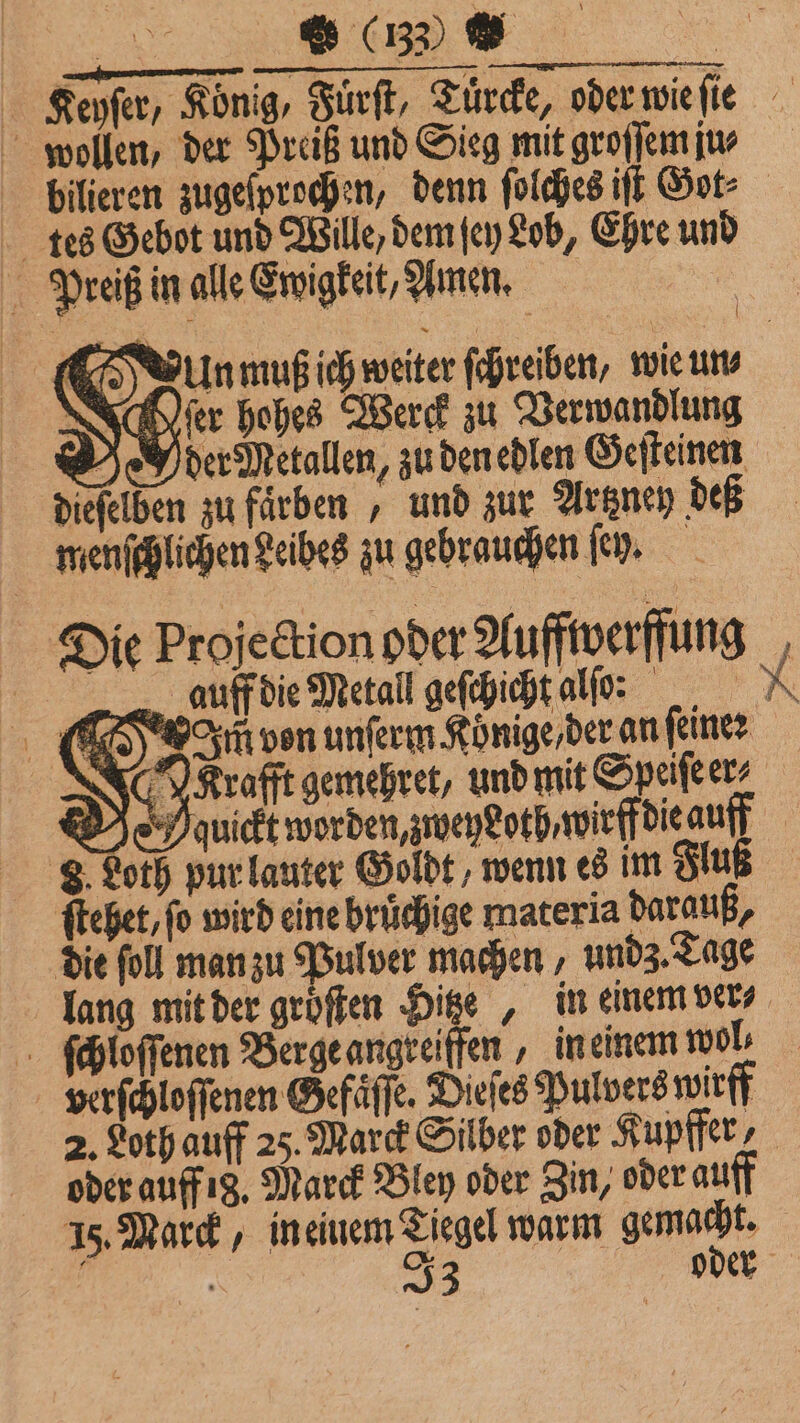 (133)
Keyſer, Koͤnig, Fuͤrſt, Tuͤrcke, oder wie ſie
wollen, der Preiß und Sieg mit groſſem ju-
bilieren zugeſprochen, denn ſolches iſt Got-
tes Gebot und Wille, dem ſey Lob, Ehre und
Preiß in alle Ewigkeit, Amen.
NUn muß ich weiter ſchreiben, wie un-
ſer hohes Werck zu Verwandlung
der Metallen, zu den edlen Geſteinen
dieſelben zu faͤrben, und zur Artzney deß
menſchlichen Leibes zu gebrauchen ſey.
Die Projection oder Auffwerffung
auff die Metall geſchicht alſo:
NIm̃ von unſerm Koͤnige, der an ſeiner
Krafft gemehret, und mit Speiſe er-
quickt worden, zwey Loth, wirff die auff
8. Loth pur lauter Goldt, wenn es im Fluß
ſtehet, ſo wird eine bruͤchige materia darauß,
die ſoll man zu Pulver machen, und 3. Tage
lang mit der groͤſten Hitze, in einem ver-
ſchloſſenen Berge angreiffen, in einem wol-
verſchloſſenen Gefaͤſſe. Dieſes Pulvers wirff
2. Loth auff 25. Marck Silber oder Kupffer,
oder auff 18. Marck Bley oder Zin, oder auff
15. Marck, in eiuem Tiegel warm gemacht.
J3 oder